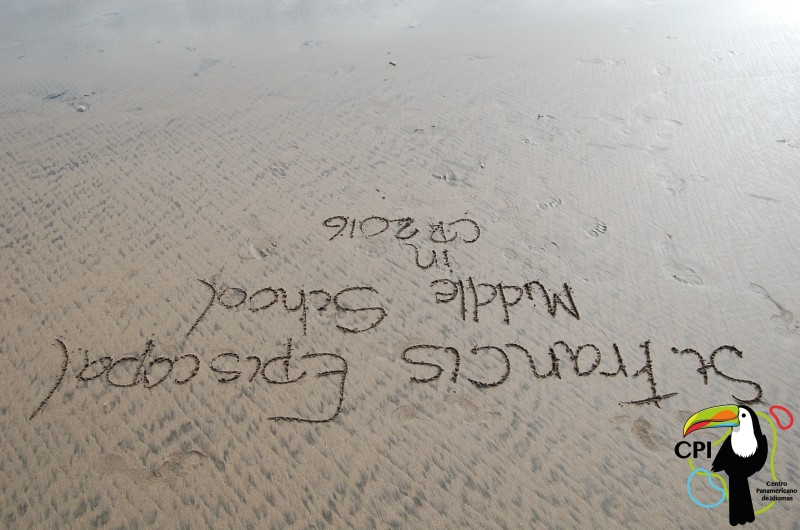 St. Francis Episcopal
Middle School
in
CR 2016
CPI
Centro
Panamericano
de Idiomas